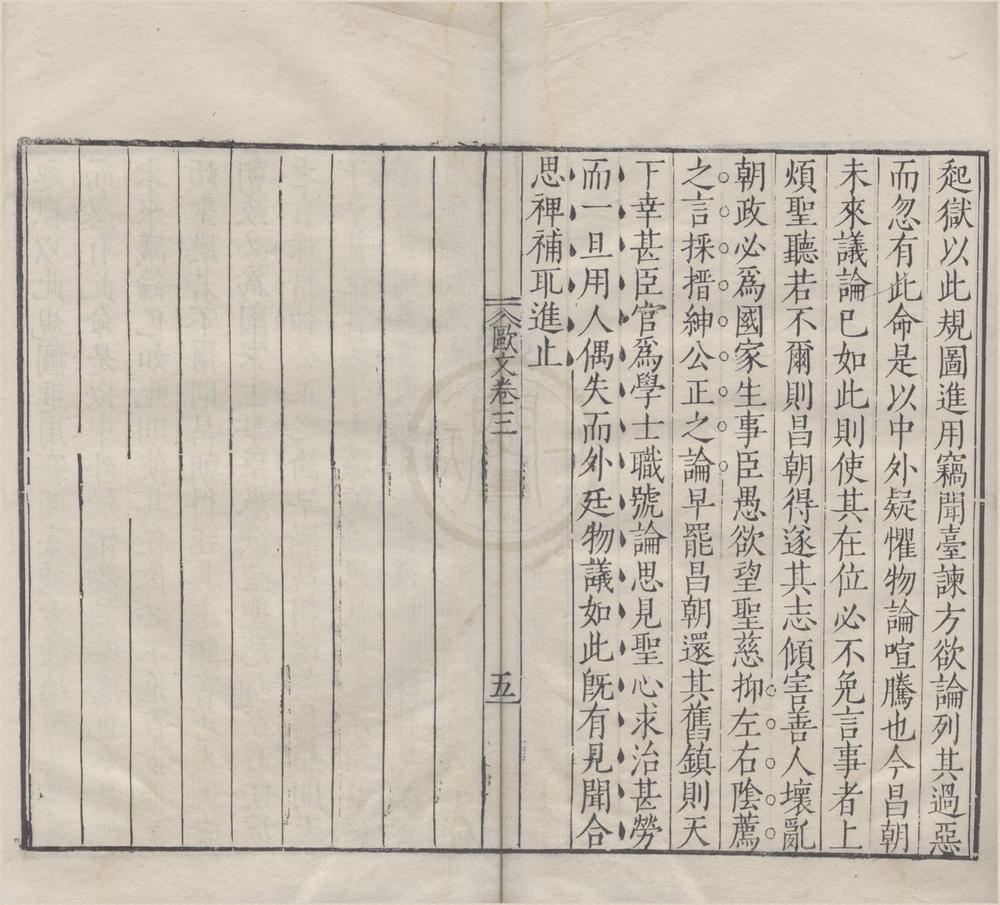 起獄以此規圖進用竊聞臺諫方欲論列其過惡
而忽有此命是以中外疑懼物論喧騰也今昌朝
未來議論已如此則使其在位必不免言事者上
煩聖聽若不爾則昌朝得遂其志傾害善人壞亂
朝政必爲國家生事臣愚欲望聖慈抑左右陰薦
之言採搢紳公正之論早罷昌朝還其舊鎮則天
下幸甚臣官爲學士職號論思見聖心求治甚勞
而一旦用人偶失而外廷物議如此旣有見聞合
思裨補取進止
歐文卷三
五